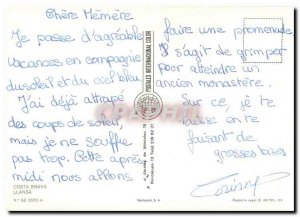 Chère Mémère
Je passe d'agréable
vacances en compagnie
du soleil et du ciel bleu
J'ai déjà attrapé
des coups de soleil,
mais je ne souffre
pas trop. Cette après
midi nous allons
faire une promenade
Il s'agit de grimper
pour atteindre un
ancien monastère.
Sur ce, je te
laisse en te
faisant de
grosses bises
POSTALES INTERNACIONAL COLOR
COSTA BRAVA
LLANSÁ